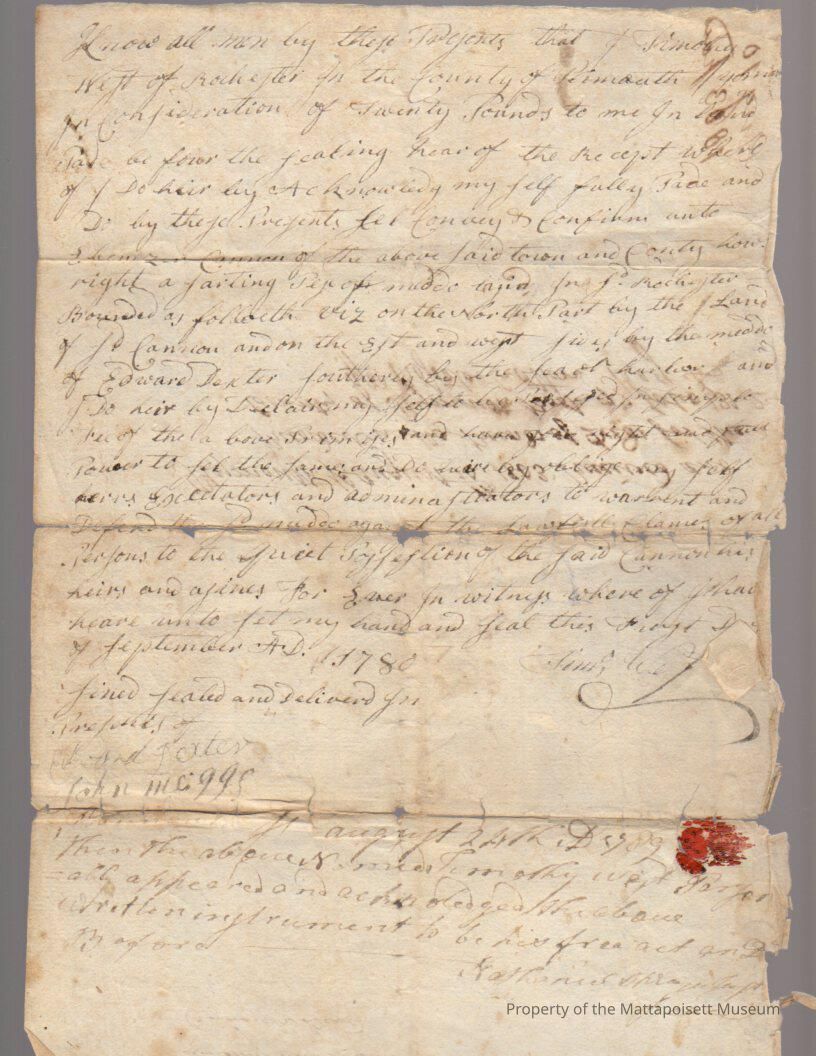 Know all men by these Presents that I Timothy
West of Rochester In the County of Plimouth yeoman
In Consideration of Twenty Pounds to me In Hand
Pade be fowr the sealing hear of the Recept wheir
of I Do heir by Acknowledg my self fulley Pade and
Do by these Presents sel Convey & Confirm unto
Ebenezer Cannon of the above said town and County
right a sarting Pes of meddo land In sd Rochester
Bounded as followeth viz on the North Part by the Land
of sd Cannon and on the Est and west sides by the meddo
of Edward Dexter southerly by the sea or harbor and
I Do heir by Declair my self
fee of the a bove Primises and have
Power to sel the same and Do heir by oblige my self
heirs Excetators and adminastrators to warrent and
Defend the sd meddo against the Lawfull Clames of all
Persons to the Quiet Possestion of the said Cannon his
heirs and asines For Ever In witness where of I have
heare unto set my hand and seal this First D
of September A.D. 1780
Timy West
sined sealed and Deliverd In
Presents of
Edward Dexter
John
august 24th AD 1789
then the above Named Timothy West Parson
=ally appeared and acknoledged the above
written instrument to be his free act and D
Before
Nathaniel
Property of the Mattapoisett Museum